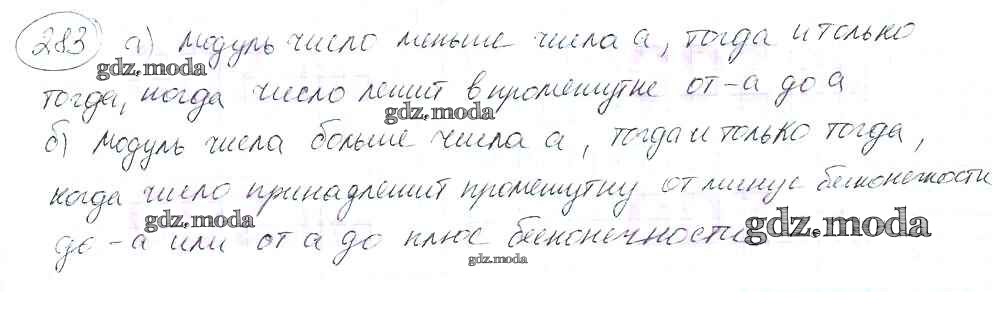 283 а) Модуль число меньше числа а, тогда и только
gdz.moda
тогда, когда число лежит в промежутке от -а до а
gdz.moda
б) Модуль числа больше числа а, тогда и только тогда,
когда число принадлежит промежутку от минус бесконечности
gdz.moda gdz.moda
до -а или от а до плюс бесконечности
gdz.moda